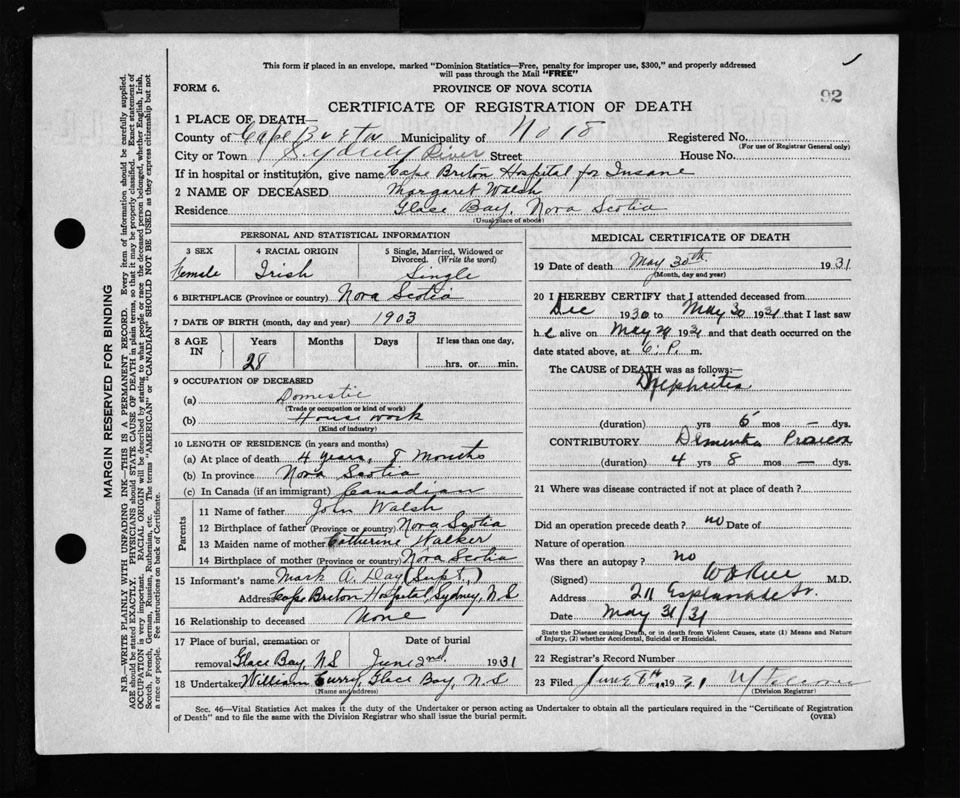 This form if placed in an envelope, marked "Dominion Statistics—Free, penalty for improper use, $300," and properly addressed
will pass through the Mail "FREE"
92
FORM 6.
PROVINCE OF NOVA SCOTIA
CERTIFICATE OF REGISTRATION OF DEATH
1 PLACE OF DEATH—
County of Cape Breton Municipality of No 18 Registered No.
(For use of Registrar General only)
City or Town Sydney River Street House No.
If in hospital or institution, give name Cape Briton Hospital for Insane
2 NAME OF DECEASED Margaret Walsh
Residence Glace Bay, Nova Scotia
(Usual place of abode)
PERSONAL AND STATISTICAL INFORMATION
3 SEX 4 RACIAL ORIGIN 5 Single, Married, Widowed or
Divorced. (Write the word)
Female Irish Single
6 BIRTHPLACE (Province or country) Nova Scotia
7 DATE OF BIRTH (month, day and year) 1903
8 AGE IN Years Months Days If less than one day,
28 hrs. or min.
9 OCCUPATION OF DECEASED
(a) Domestic
(Trade or occupation or kind of work)
(b) House work
(Kind of industry)
10 LENGTH OF RESIDENCE (in years and months)
(a) At place of death 4 years, 8 Months
(b) In province Nova Scotia
(c) In Canada (if an immigrant) Canadian
Parents
11 Name of father John Walsh
12 Birthplace of father (Province or country) Nova Scotia
13 Maiden name of mother Catherine Walker
14 Birthplace of mother (Province or country) Nova Scotia
15 Informant's name Mark A. Day (Supt.)
Address Cape Briton Hospital, Sydney, N.S
16 Relationship to deceased None
17 Place of burial, cremation or Date of burial
removal Glace Bay, N.S June 2nd. 1931
18 Undertaker William Curry, Glace Bay, N.S
(Name and address)
MEDICAL CERTIFICATE OF DEATH
19 Date of death May 30th 1931
(Month, day and year)
20 I HEREBY CERTIFY that I attended deceased from
Dec 1930 to May 30 1931 that I last saw
h alive on May 29 1931 and that death occurred on
date stated above, at 6: P. m.
The CAUSE of DEATH was as follows:—
Nephritis
(duration) yrs 6 mos — dys.
CONTRIBUTORY Dementia Praecox
(duration) 4 yrs 8 mos — dys.
21 Where was disease contracted if not at place of death?
Did an operation precede death? no Date of
Nature of operation
Was there an autopsy? no
(Signed) M.D.
Address 211 Esplanade St.
Date May 31/31
State the Disease causing Death, or in death from Violent Causes, state (1) Means and Nature
of Injury, (2) whether Accidental, Suicidal or Homicidal.
22 Registrar's Record Number
23 Filed June 8th 1931
(Division Registrar)
Sec. 46—Vital Statistics Act makes it the duty of the Undertaker or person acting as Undertaker to obtain all the particulars required in the "Certificate of Registration
of Death" and to file the same with the Division Registrar who shall issue the burial permit.
(OVER)
MARGIN RESERVED FOR BINDING
N.B.—WRITE PLAINLY WITH UNFADING INK—THIS IS A PERMANENT RECORD. Every item of information should be carefully supplied.
AGE should be stated EXACTLY. PHYSICIANS should STATE CAUSE OF DEATH in plain terms, so that it may be properly classified. Exact statement of
OCCUPATION is very important. RACIAL ORIGIN will be described by stating to what people or race the deceased person belonged, whether English, Irish,
Scotch, French, German, Russian, Ruthenian, etc. The terms "AMERICAN" or "CANADIAN" SHOULD NOT BE USED as they express citizenship but not
a race or people. See instructions on back of Certificate.